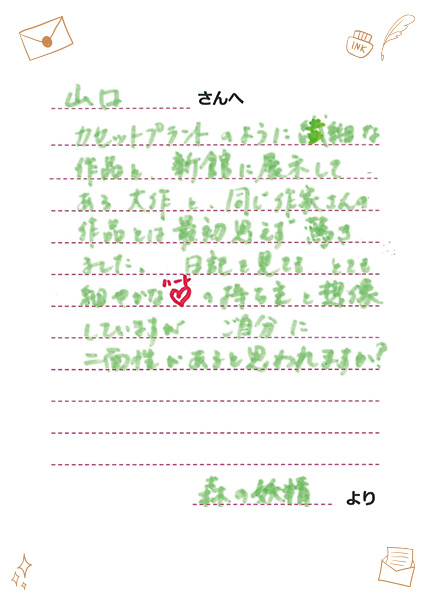 山口 さんへ
カセットプラントのように 繊細な
作品と、新館に展示して
ある大作と、同じ作家さんの
作品とは最初思えず驚き
ました。 日記を見ても とても
細やかなハートの持ち主と想像
していますが ご自分に
二面性があると思われますか?
森の妖精 より
INK